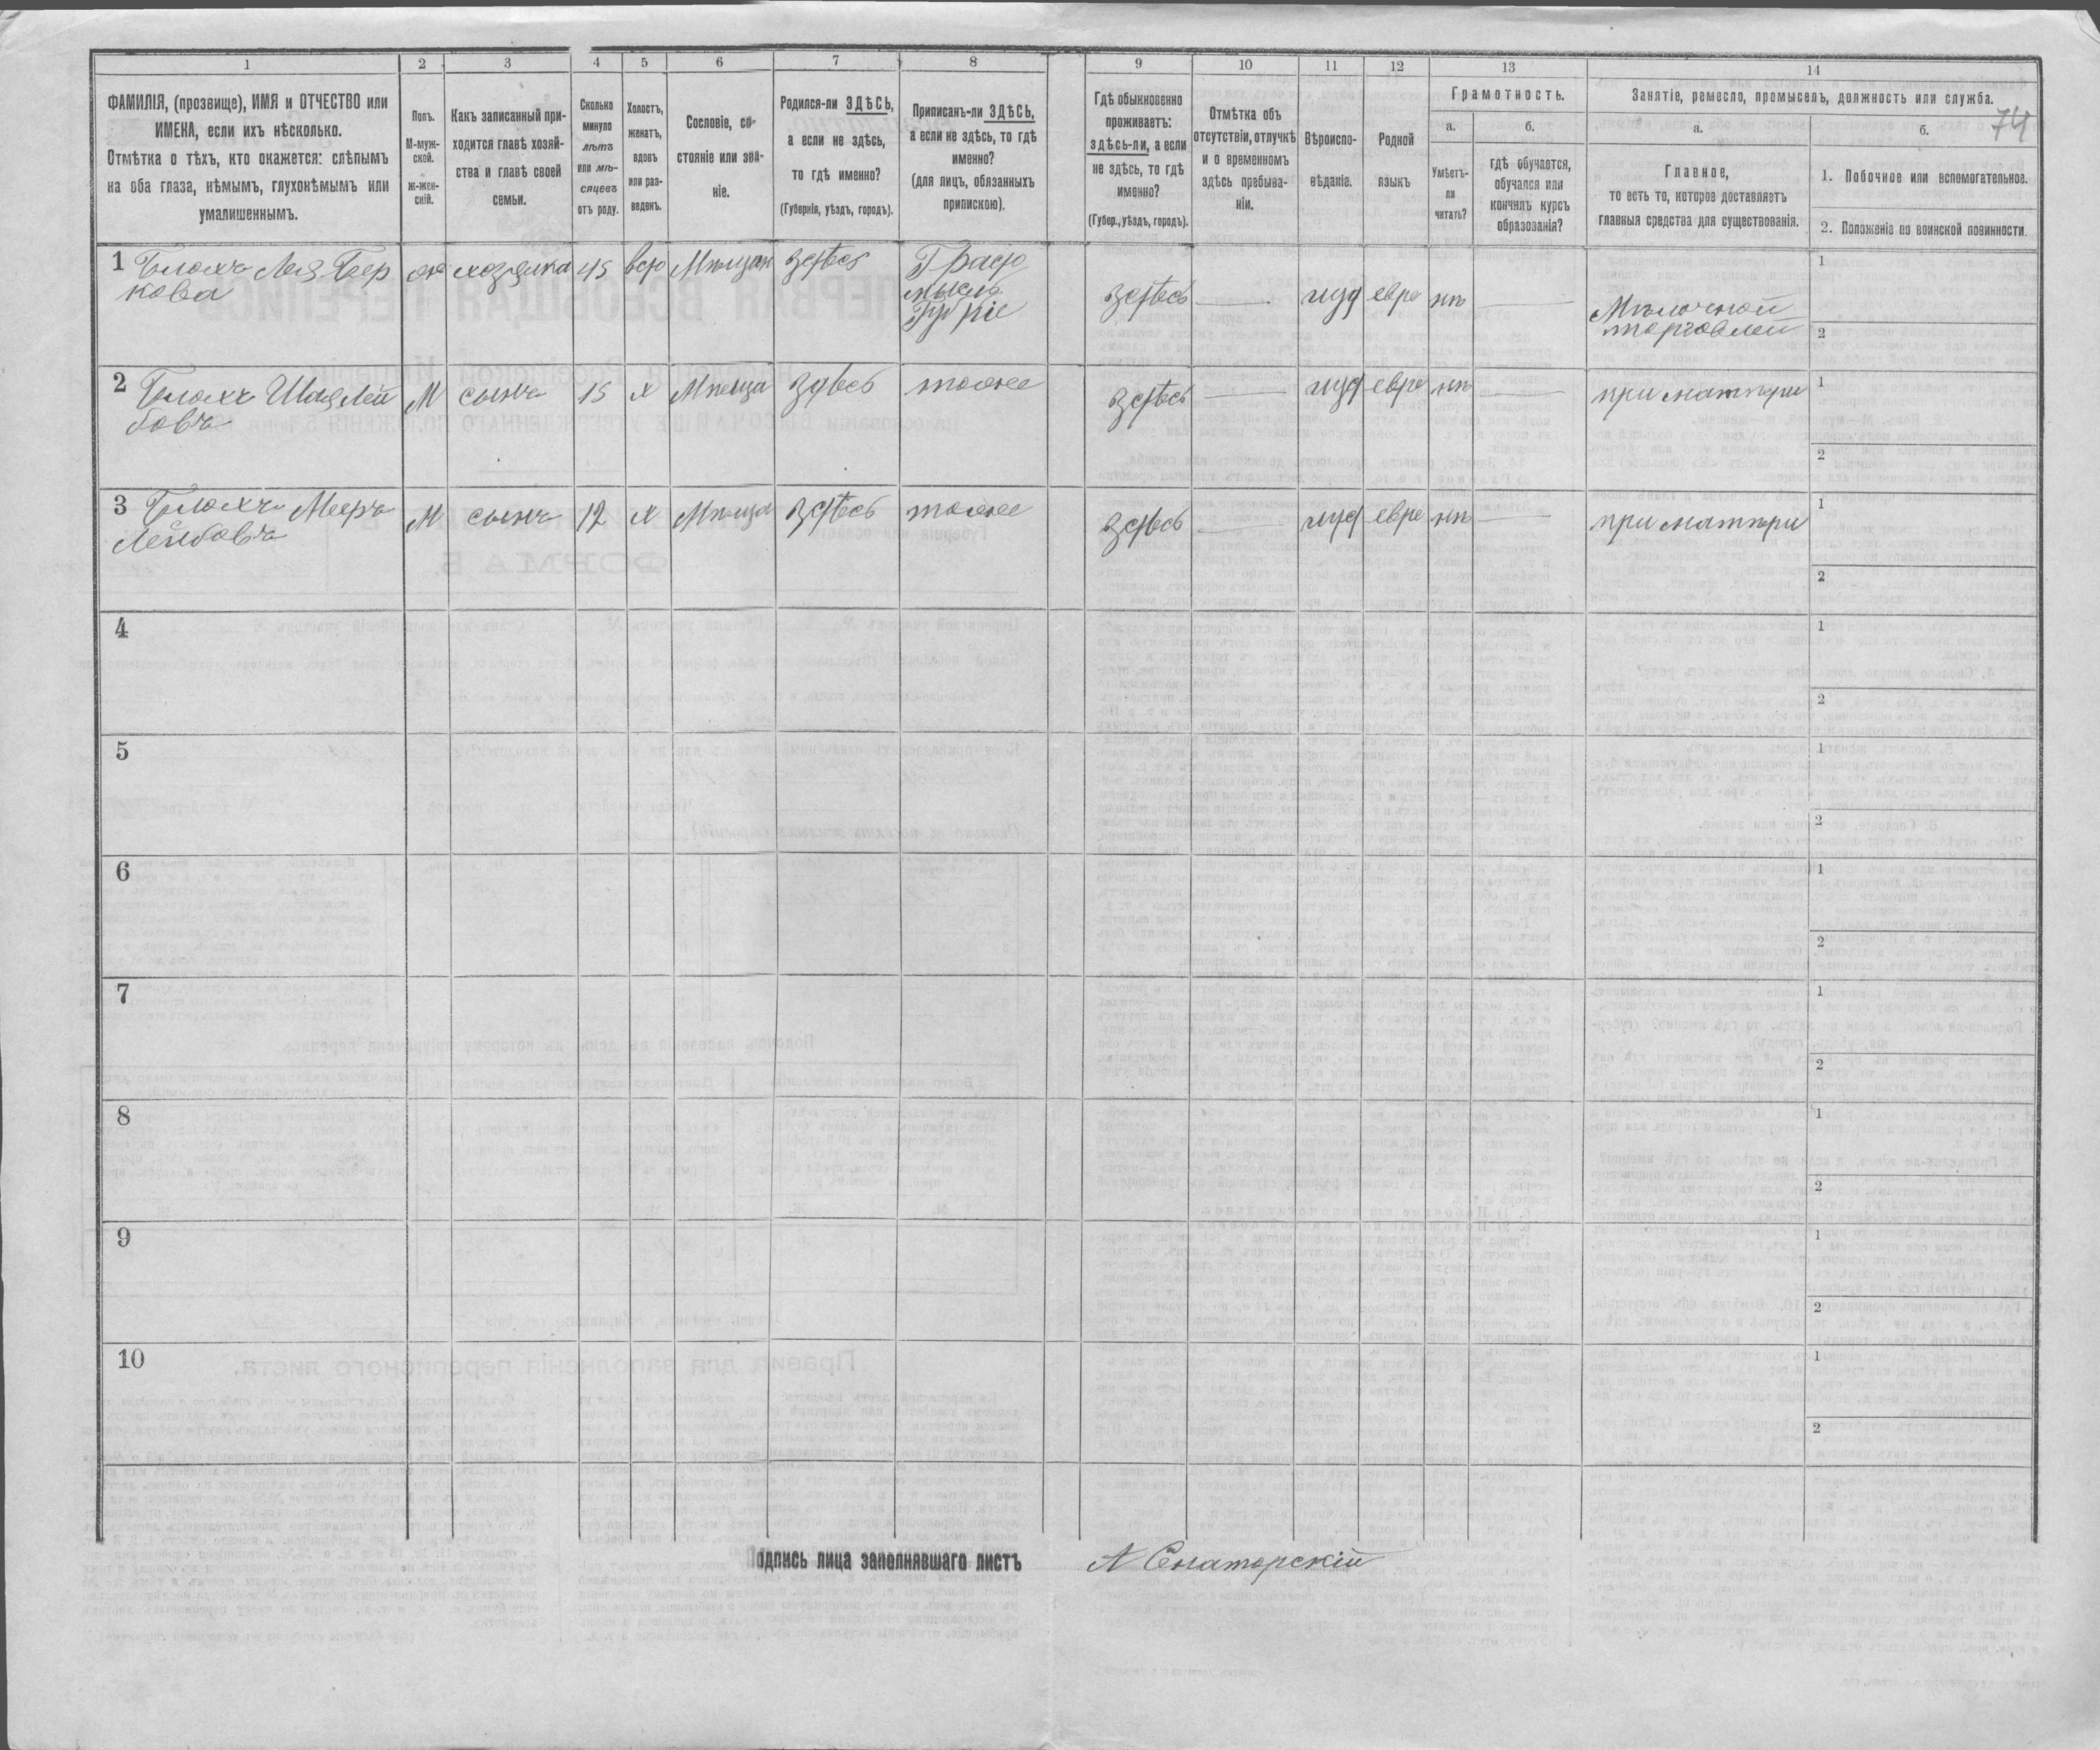 1 2 3 4 5 6 7 8 9 10 11 12 13 14
ФАМИЛІЯ, (прозвище), ИМЯ и ОТЧЕСТВО или
ИМЕНА, если ихъ нѣсколько.
Отмѣтка о тѣхъ, кто окажется: слѣпымъ
на оба глаза, нѣмымъ, глухонѣмымъ или
умалишеннымъ.
Полъ.
М-муж-
ской.
Ж-жен-
скій.
Какъ записанный при-
ходится главѣ хозяй-
ства и главѣ своей
семьи.
Сколько
минуло
лѣтъ
или мѣ-
сяцевъ
отъ роду.
Холостъ,
женатъ,
вдовъ
или раз-
веденъ.
Сословіе, со-
стояніе или зва-
ніе.
Родился-ли ЗДѢСЬ,
а если не здѣсь,
то гдѣ именно?
(Губернія, уѣздъ, городъ).
Приписанъ-ли ЗДѢСЬ,
а если не здѣсь, то гдѣ
именно?
(для лицъ, обязанныхъ
припискою).
Гдѣ обыкновенно
проживаетъ:
здѣсь-ли, а если
не здѣсь, то гдѣ
именно?
(Губер., уѣздъ, городъ).
Отмѣтка объ
отсутствіи, отлучкѣ
и о временномъ
здѣсь пребыва-
ніи.
Вѣроиспо-
вѣданіе.
Родной
языкъ
Грамотность.
а.
Умѣетъ-
ли
читать?
б.
гдѣ обучается,
обучался или
кончилъ курсъ
образованія?
Занятіе, ремесло, промыселъ, должность или служба.
74
а.
Главное,
то есть то, которое доставляетъ
главныя средства для существованія.
б.
1. Побочное или вспомогательное.
2. Положеніе по воинской повинности.
1 Блохъ Лея Бер
кова
ж хозяйка 45 вдо Мѣщан здѣсь
здѣсь — иуд евре нѣ —
Мѣлочной
торговлей
1
2
2 Блохъ Шая Лей
бовъ
М сынъ 15 х Мѣща здѣсь тоже
здѣсь — иуд евре нѣ — при матѣри
1
2
3 Блохъ Мееръ
Лейбовъ
М сынъ 12 х Мѣща здѣсь тоже
здѣсь — иуд евре нѣ — при матѣри
1
2
4 1
2
5 1
2
6 1
2
7 1
2
8 1
2
9 1
2
10 1
2
Подпись лица заполнявшаго листъ А Сенаторскій